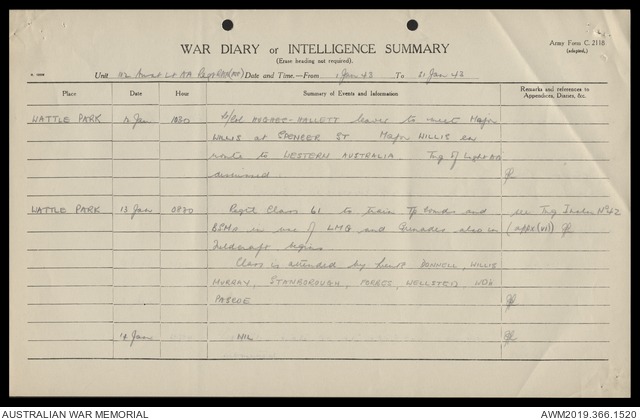 WAR DIARY or INTELLIGENCE SUMMARY
Army Form C. 2118
(adapted.)
(Erase heading not required).
Unit Aust Lt AA Regt Date and Time.—From 1 Jan 43 To 31 Jan 43
Place Date Hour Summary of Events and Information Remarks and references to Appendices, Diaries, &c.
WATTLE PARK Jan 1030 Lt/Col HUGHES-HALLETT leaves to meet Major
WILLIS at SPENCER ST Major WILLIS en
route to WESTERN AUSTRALIA. Trg of Light AA
discussed
WATTLE PARK 13 Jan 0830 Regtl Class 61 to train Tp Comds and see Trg Instn No 42
BSMs in use of LMG and Grenades also in (appx (VI))
Fieldcraft begins
Class is attended by Lieuts DONNELL, WILLIS
MURRAY, STANBOROUGH, FORBES, WELLSTED
PASCOE
14 Jan NIL
AUSTRALIAN WAR MEMORIAL AWM2019.366.1520